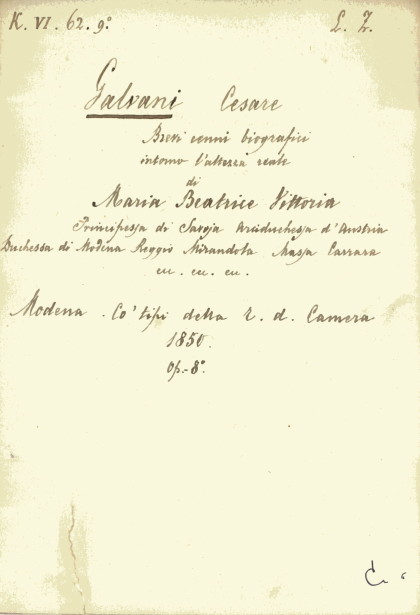 K. VI. 62. 9.° L. Z.
Galvani Cesare
Brevi cenni biografici
intorno l'altezza reale
di
Maria Beatrice Vittoria
Principessa di Savoja Arciduchessa d'Austria
Duchessa di Modena Reggio Mirandola Massa Carrara
ec. ec. ec.
Modena . Co' tipi della R. d. Camera
1850.
op.-8°.